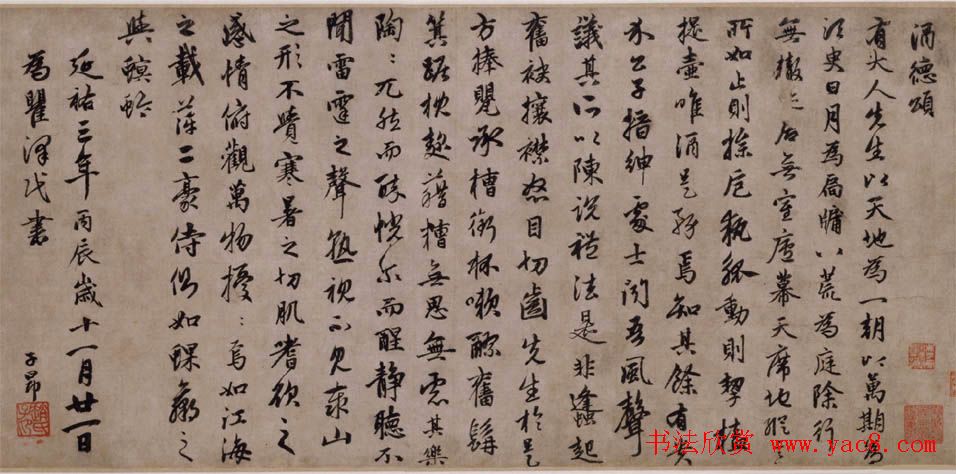 酒德頌
有大人先生以天地為一朝以萬期為
須臾日月為扃牖八荒為庭除行
無轍迹居無室廬幕天席地縱意
所如止則操卮執觚動則挈榼
提壺唯酒是務焉知其餘有貴
介公子搢紳處士聞吾風聲
議其所以陳說禮法是非蠭起
奮袂攘襟怒目切齒先生於是
方捧甖承槽銜杯漱醪奮髯
箕踞枕麴藉糟無思無慮其樂
陶〻兀然而醉恍尓而醒靜聽不
聞雷霆之聲熟視不見泰山
之形不覺寒暑之切肌嗜欲之
感情俯觀萬物擾〻焉如江海
之載萍二豪侍側如蜾蠃之
與螟蛉
延祐三年丙辰歲十一月廿一日
為瞿澤民書
子昂
书法欣赏 www.yac8.com